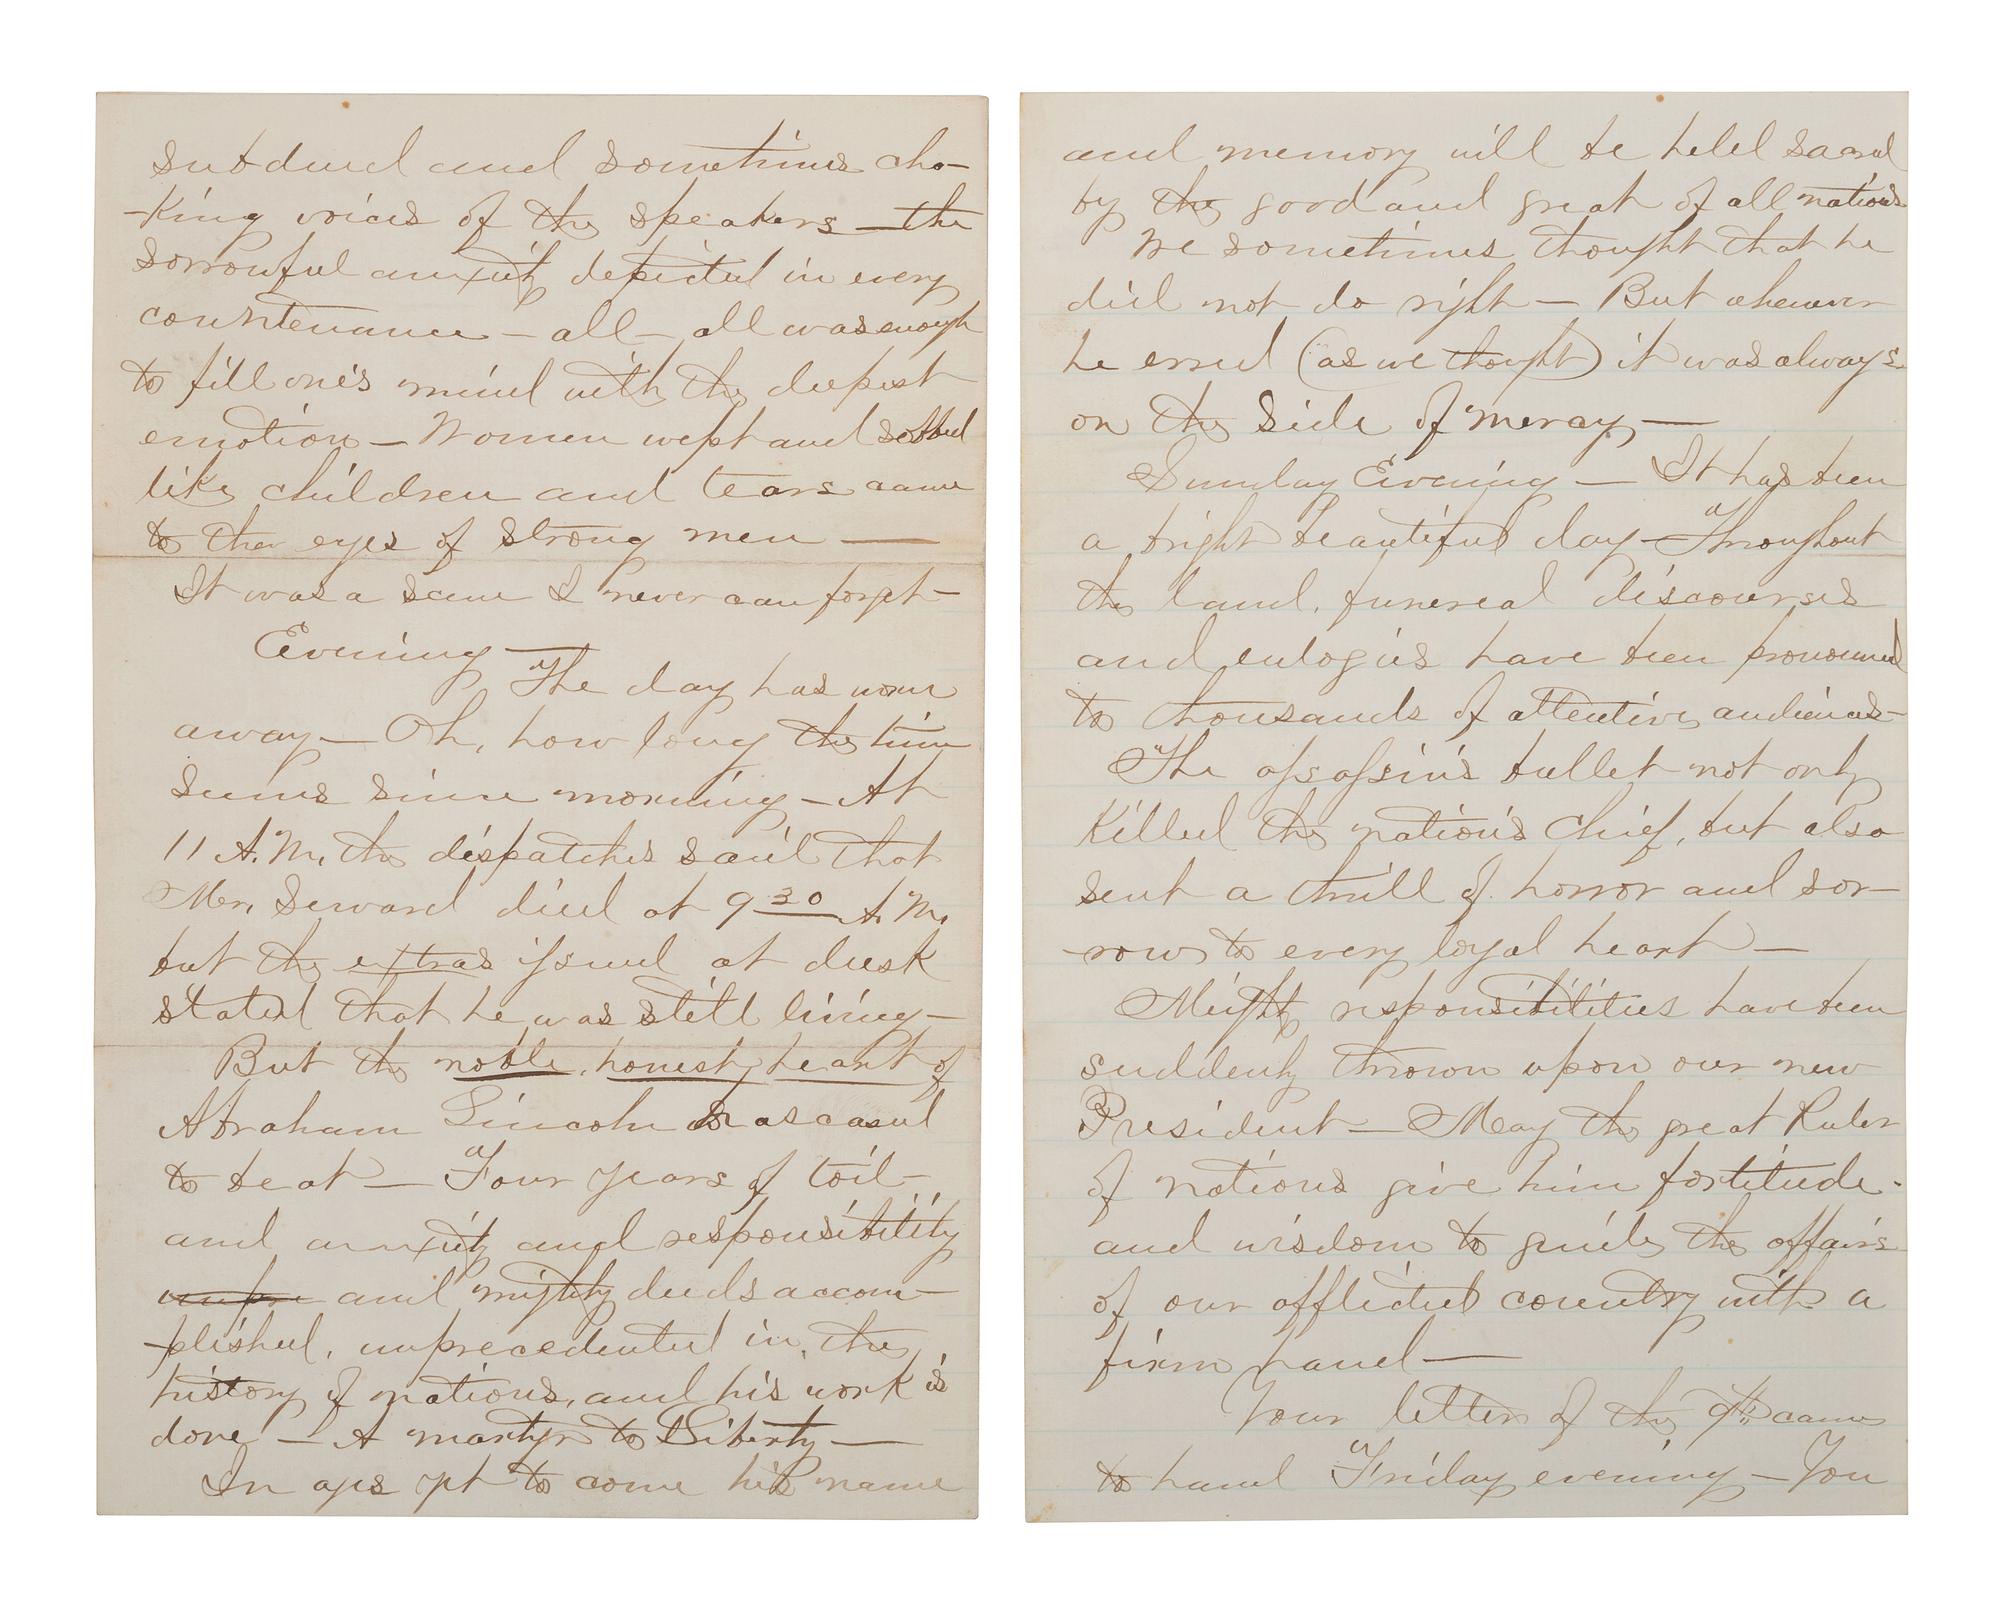 subdued and sometimes cho-
-king voices of the speakers — the
sorrowful anxiety depicted in every
countenance — all — all was enough
to fill one's mind with the deepest
emotion — Women wept and sobbed
like children and tears came
to the eyes of strong men —
It was a scene I never can forget —
Evening —
The day has worn
away — Oh, how long the time
seems since morning — At
11 A.M. the dispatches said that
Mr. Seward died at 9 30 A.M.
but the extras issued at dusk
stated that he was still living —
But the noble, honest, heart of
Abraham Lincoln has ceased
to beat — Four years of toil
and anxiety and responsibility
and mighty deeds accom-
-plished, unprecedented in the
history of nations, and his work is
done — A martyr to Liberty —
In ages yet to come his name
and memory will be held sacred
by the good and great of all nations
We sometimes thought that he
did not do right — But whenever
he erred (as we thought) it was always
on the side of mercy —
Sunday Evening — It has been
a bright beautiful day — Throughout
the land, funereal discourses
and eulogies have been pronounced
to thousands of attentive audiences —
The assassin's bullet not only
killed the nation's Chief, but also
sent a thrill of horror and sor-
-row to every loyal heart —
Mighty responsibilities have been
suddenly thrown upon our new
President — May the great Ruler
of nations give him fortitude
and wisdom to guide the affairs
of our afflicted country with a
firm hand —
Your letter of the 9th came
to hand Friday evening — You